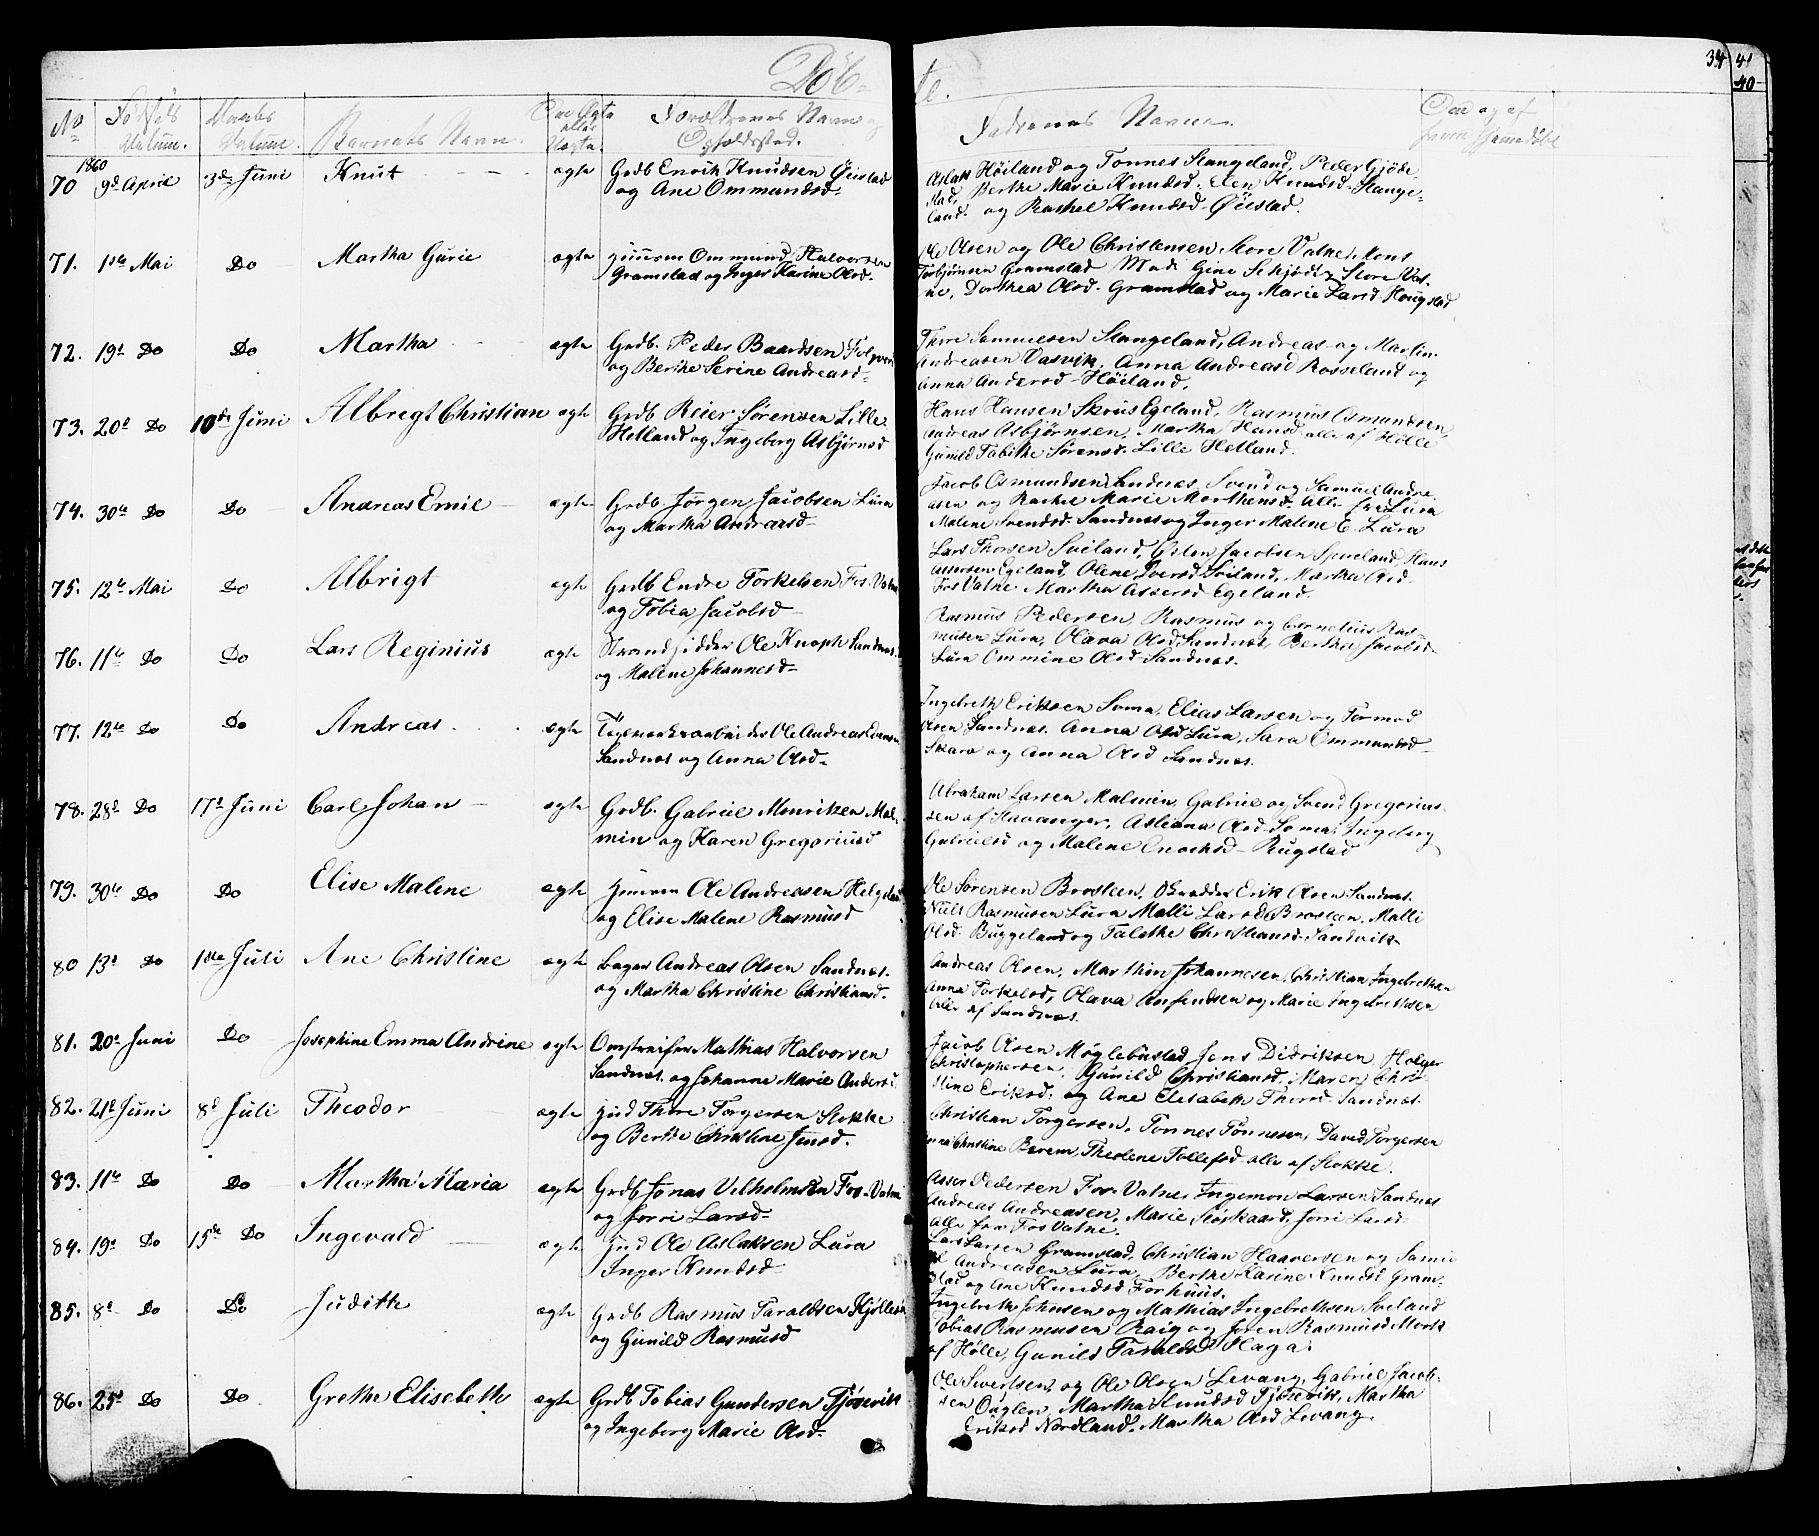 Döb-
te.
34
41
40
No
Fødsels Datum.
Daabs Datum.
Barnets Navn.
Om Ægte eller Uægte.
Forældrenes Navn og Opholdssted.
Faddernes Navne.
Om og af hvem hjemmedøbt
1860
70 9de April 3die Juni Knut ægte Grdb Enoch Knudsen Øiestad
og Ane Ommundsd.
Aslak Høiland og Tønnes Stangeland, Peder Gjöde-
stad, Berthe Marie Knudsd. Elen Knudsd. Stange-
land. og Rachel Knudsd. Øiestad.
71. 1ste Mai Do Martha Gurie ægte Huusm Ommund Halvorsen
Gramstad og Inger Karine Olsd.
Ole Olsen og Ole Christensen Store Vatne, Mons
Torbjörnsen Gramstad Mad. Gine Schjødt, Store Vat-
ne, Dorthea Olsd. Gramstad og Marie Larsd. Hougstad
72. 19d Do Do Martha ægte Grdb. Peder Baardsen
og Berthe Serine Andreasd.
Thore Samuelsen Stangeland, Andreas og Martin
Andreasen Vasvik, Anna Andreasd Rosseland og
Anna Andersd Høiland.
73. 20d Do 10de Juni Albregt Christian ægte Grdb Reier Sörensen Lille
Hetland og Ingeborg Asbjörnsd
Hans Hansen Egeland, Rasmus Osmundsen,
Andreas Asbjørnsen, Martha Hansd. alle af Hölle
Gunild Tabithe Sörensd. Lille Hetland.
74. 30te Do Do Andreas Emil ægte Grdb Jörgen Jacobsen Lura
og Martha Andreasd
Jacob Osmundsen Sandnæs, Svend og Samuel Andre-
asen og Rachel Marie Morthensd. alle fra Lura
Malene Svendsd. Sandnæs og Inger Malene E. Lura
75. 12te Mai Do Albrigt ægte Grdb Endre Torkelsen Fos-Vatne
og Tobia Jacobsd
Lars Thorsen Sviland, Osten Jacobsen Hans
Assersen Egeland, Olene Iversd Sviland, Martha Olsd
Fos Vatne Martha Assersd Egeland.
76. 11te Do Do Lars Reginius ægte Strandsidder Ole Knoph Sandnæs.
og Malene Johannesd
Rasmus Pedersen, Rasmus og Cornelius Ras-
musen Lura, Olava Olsd. Sandnæs, Bertha Jacobsd
Lura Ommine Olsd Sandnæs.
77. 12te Do Do Andreas ægte Teglværksarbeider Ole Andreas
Sandnæs og Anna Olsd
Ingebreth Eriksen Soma, Elias Larsen og Tormod
Olsen Sandnæs. Anna Olsd Lura, Sara Ommundsd
Skara og Anna Olsd Sandnæs.
78. 28d Do 17d Juni Carl Johan ægte Grdb. Gabriel Monriksen Mal-
min og Karen Gregoriusd
Abraham Larsen Malmin, Gabriel og Svend Gregorius-
sen af Stavanger, Asleana Olsd Soma, Ingeborg
Gabrielsd og Malene Enochsd Rugstad
79. 30te Do Do Elise Malene ægte Huusm Ole Andreasen Helgeland
og Elise Malene Rasmusd
Ole Sørensen Brosteen, Skrædder Erik Olsen Sandnæs.
Niels Rasmusen Lura Malli Larsd Brosteen, Malli
Olsd. Buggeland og Talethe Christiansd. Sandvik.
80 13d Do 1ste Juli Ane Christine ægte Bager Andreas Olsen Sandnæs.
og Martha Christine Christiansd.
Andreas Olsen, Marthin Johannesen, Christian Ingebrethsen
Anna Torkelsd, Olava Anfindsen og Marie Ingebrethsen
Alle af Sandnæs.
81. 20d Juni Do Josephine Emma Andrine ægte Omstreifer Mathias Halvorsen
Sandnæs. og Johanne Marie Andersd
Jacob Olsen Møglebustad Jens Didriksen, Holger
Christophersen, Gunild Christiansd. Maren Chri-
stine Eriksd. og Ane Elisabeth Thorsd. Sandnæs.
82. 21d Juni 8d Juli Theodor ægte Husm Thore Torgersen Stokke
og Berthe Christine Jensd.
Christian Torgersen. Tonnes Tönnesen, David Torgersen
Christine Theolene Tollefsd alle af Stokke.
83. 11te Do Do Martha Maria ægte Grdb Jonas Vilhelmsen Fos-Vatne
og Jorri Larsd.
Asser Pedersen Fos-Vatne, Ingemon Larsen Sandnæs
Andreas Andreasen, Marie Jorri Larsd.
alle fra Fos Vatne.
84. 19d Do 15de Do Ingevald ægte Hus Ole Aslaksen Lura
Inger Knudsd.
Lars Larsen Gramstad, Christian Haaversen og Samu-
el Andreasen Lura, Berthe Karine Knudsd Gram-
stad og Ane Knudsd Forhuus.
85. 8d Do Do Judith ægte Grdb Rasmus Taraldsen Kjölles
og Gunild Rasmusd
Ingebreth Johnsen og Mathias Ingebrethsen Sviland
Tobias Rasmusen Raig og Søren Rasmusd
af Hölle, Gunild Taraldsd Haga.
86. 25d Do Do Grethe Elisebeth ægte Grdb Tobias Gundersen Tjösevik
og Ingeborg Marie Olsd.
Ole Sivertsen, og Ole Olsen Levang, Gabriel Jacob-
sen Onglen, Martha Knudsd Tjösevik, Martha
Eriksd Nordland, Martha Olsd Levang.